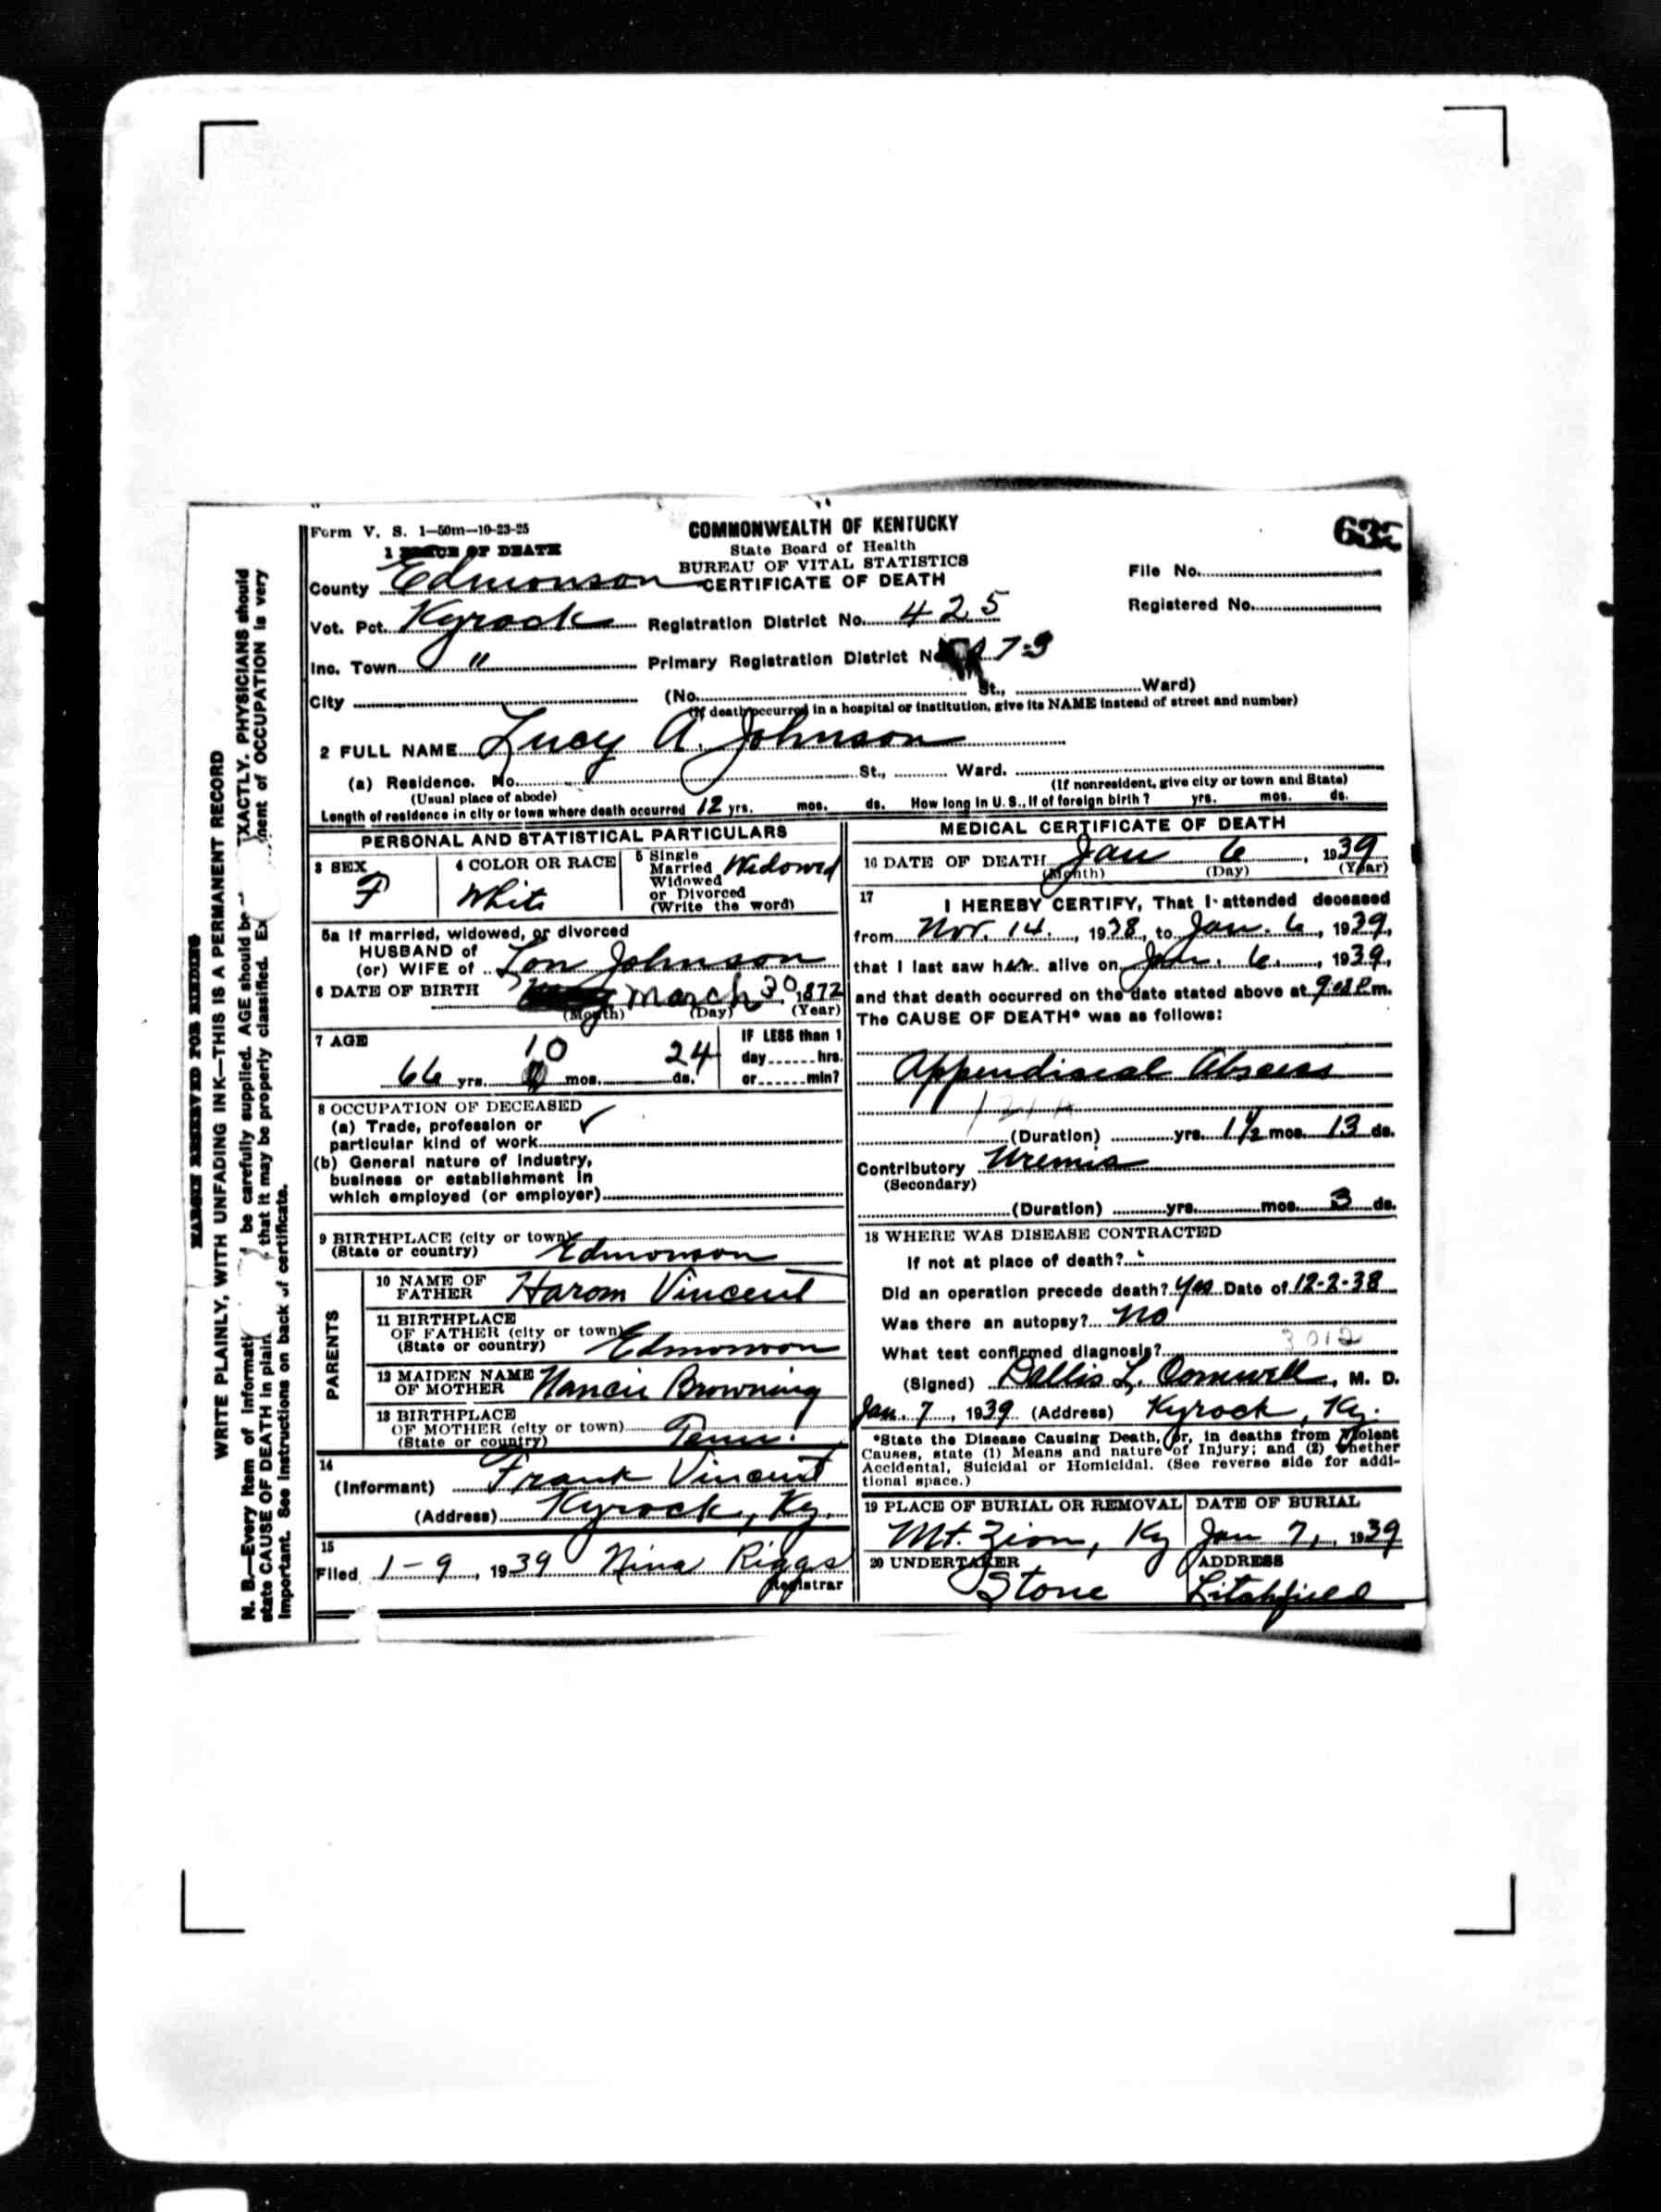 Form V. S. 1—50m—10-23-25
COMMONWEALTH OF KENTUCKY
State Board of Health
BUREAU OF VITAL STATISTICS
CERTIFICATE OF DEATH
1 PLACE OF DEATH
County Edmonson
File No.
Vot. Pct. Kyrock
Registration District No. 425
Registered No.
Inc. Town "
Primary Registration District No. 73
City
(No. St., Ward)
(If death occurred in a hospital or institution, give its NAME instead of street and number)
2 FULL NAME Lucy A. Johnson
(a) Residence. No. St., Ward.
(Usual place of abode)
(If nonresident, give city or town and State)
Length of residence in city or town where death occurred 12 yrs. mos. ds. How long in U. S., if of foreign birth? yrs. mos. ds.
PERSONAL AND STATISTICAL PARTICULARS
3 SEX
F
4 COLOR OR RACE
White
5 Single
Married
Widowed
or Divorced
(Write the word)
Widowed
5a If married, widowed, or divorced
HUSBAND of
(or) WIFE of Lon Johnson
6 DATE OF BIRTH March 30, 1872
(Month) (Day) (Year)
7 AGE
66 yrs. 10 mos. 24 ds.
IF LESS than 1
day hrs.
or min?
8 OCCUPATION OF DECEASED
(a) Trade, profession or
particular kind of work
(b) General nature of industry,
business or establishment in
which employed (or employer)
9 BIRTHPLACE (city or town)
(State or country) Edmonson
PARENTS
10 NAME OF
FATHER Harom Vincent
11 BIRTHPLACE
OF FATHER (city or town)
(State or country) Edmonson
12 MAIDEN NAME
OF MOTHER Nancie Browning
13 BIRTHPLACE
OF MOTHER (city or town)
(State or country) Tenn.
14
(Informant) Frank Vincent
(Address) Kyrock, Ky.
15
Filed 1-9, 1939 Nina Riggs
Registrar
MEDICAL CERTIFICATE OF DEATH
16 DATE OF DEATH Jan 6, 1939
(Month) (Day) (Year)
17
I HEREBY CERTIFY, That I attended deceased
from Nov. 14, 1938, to Jan. 6, 1939,
that I last saw her alive on Jan. 6, 1939,
and that death occurred on the date stated above at P.m.
The CAUSE OF DEATH* was as follows:
Appendiceal Abscess
(Duration) yrs. 1½ mos. 13 ds.
Contributory Uremia
(Secondary)
(Duration) yrs. mos. 3 ds.
18 WHERE WAS DISEASE CONTRACTED
If not at place of death?
Did an operation precede death? Yes Date of 12-2-38
Was there an autopsy? No
3012
What test confirmed diagnosis?
(Signed) Dallis L. Cornwell, M. D.
Jan. 7, 1939 (Address) Kyrock, Ky.
*State the Disease Causing Death, or, in deaths from Violent
Causes, state (1) Means and nature of Injury; and (2) Whether
Accidental, Suicidal or Homicidal. (See reverse side for addi-
tional space.)
19 PLACE OF BURIAL OR REMOVAL
Mt. Zion, Ky
DATE OF BURIAL
Jan 7, 1939
20 UNDERTAKER
Stone
ADDRESS
Litchfield
MARGIN RESERVED FOR BINDING
WRITE PLAINLY, WITH UNFADING INK—THIS IS A PERMANENT RECORD
N. B.—Every item of informati be carefully supplied. AGE should be EXACTLY. PHYSICIANS should
state CAUSE OF DEATH in plain that it may be properly classified. Ex ment of OCCUPATION is very
important. See instructions on back of certificate.